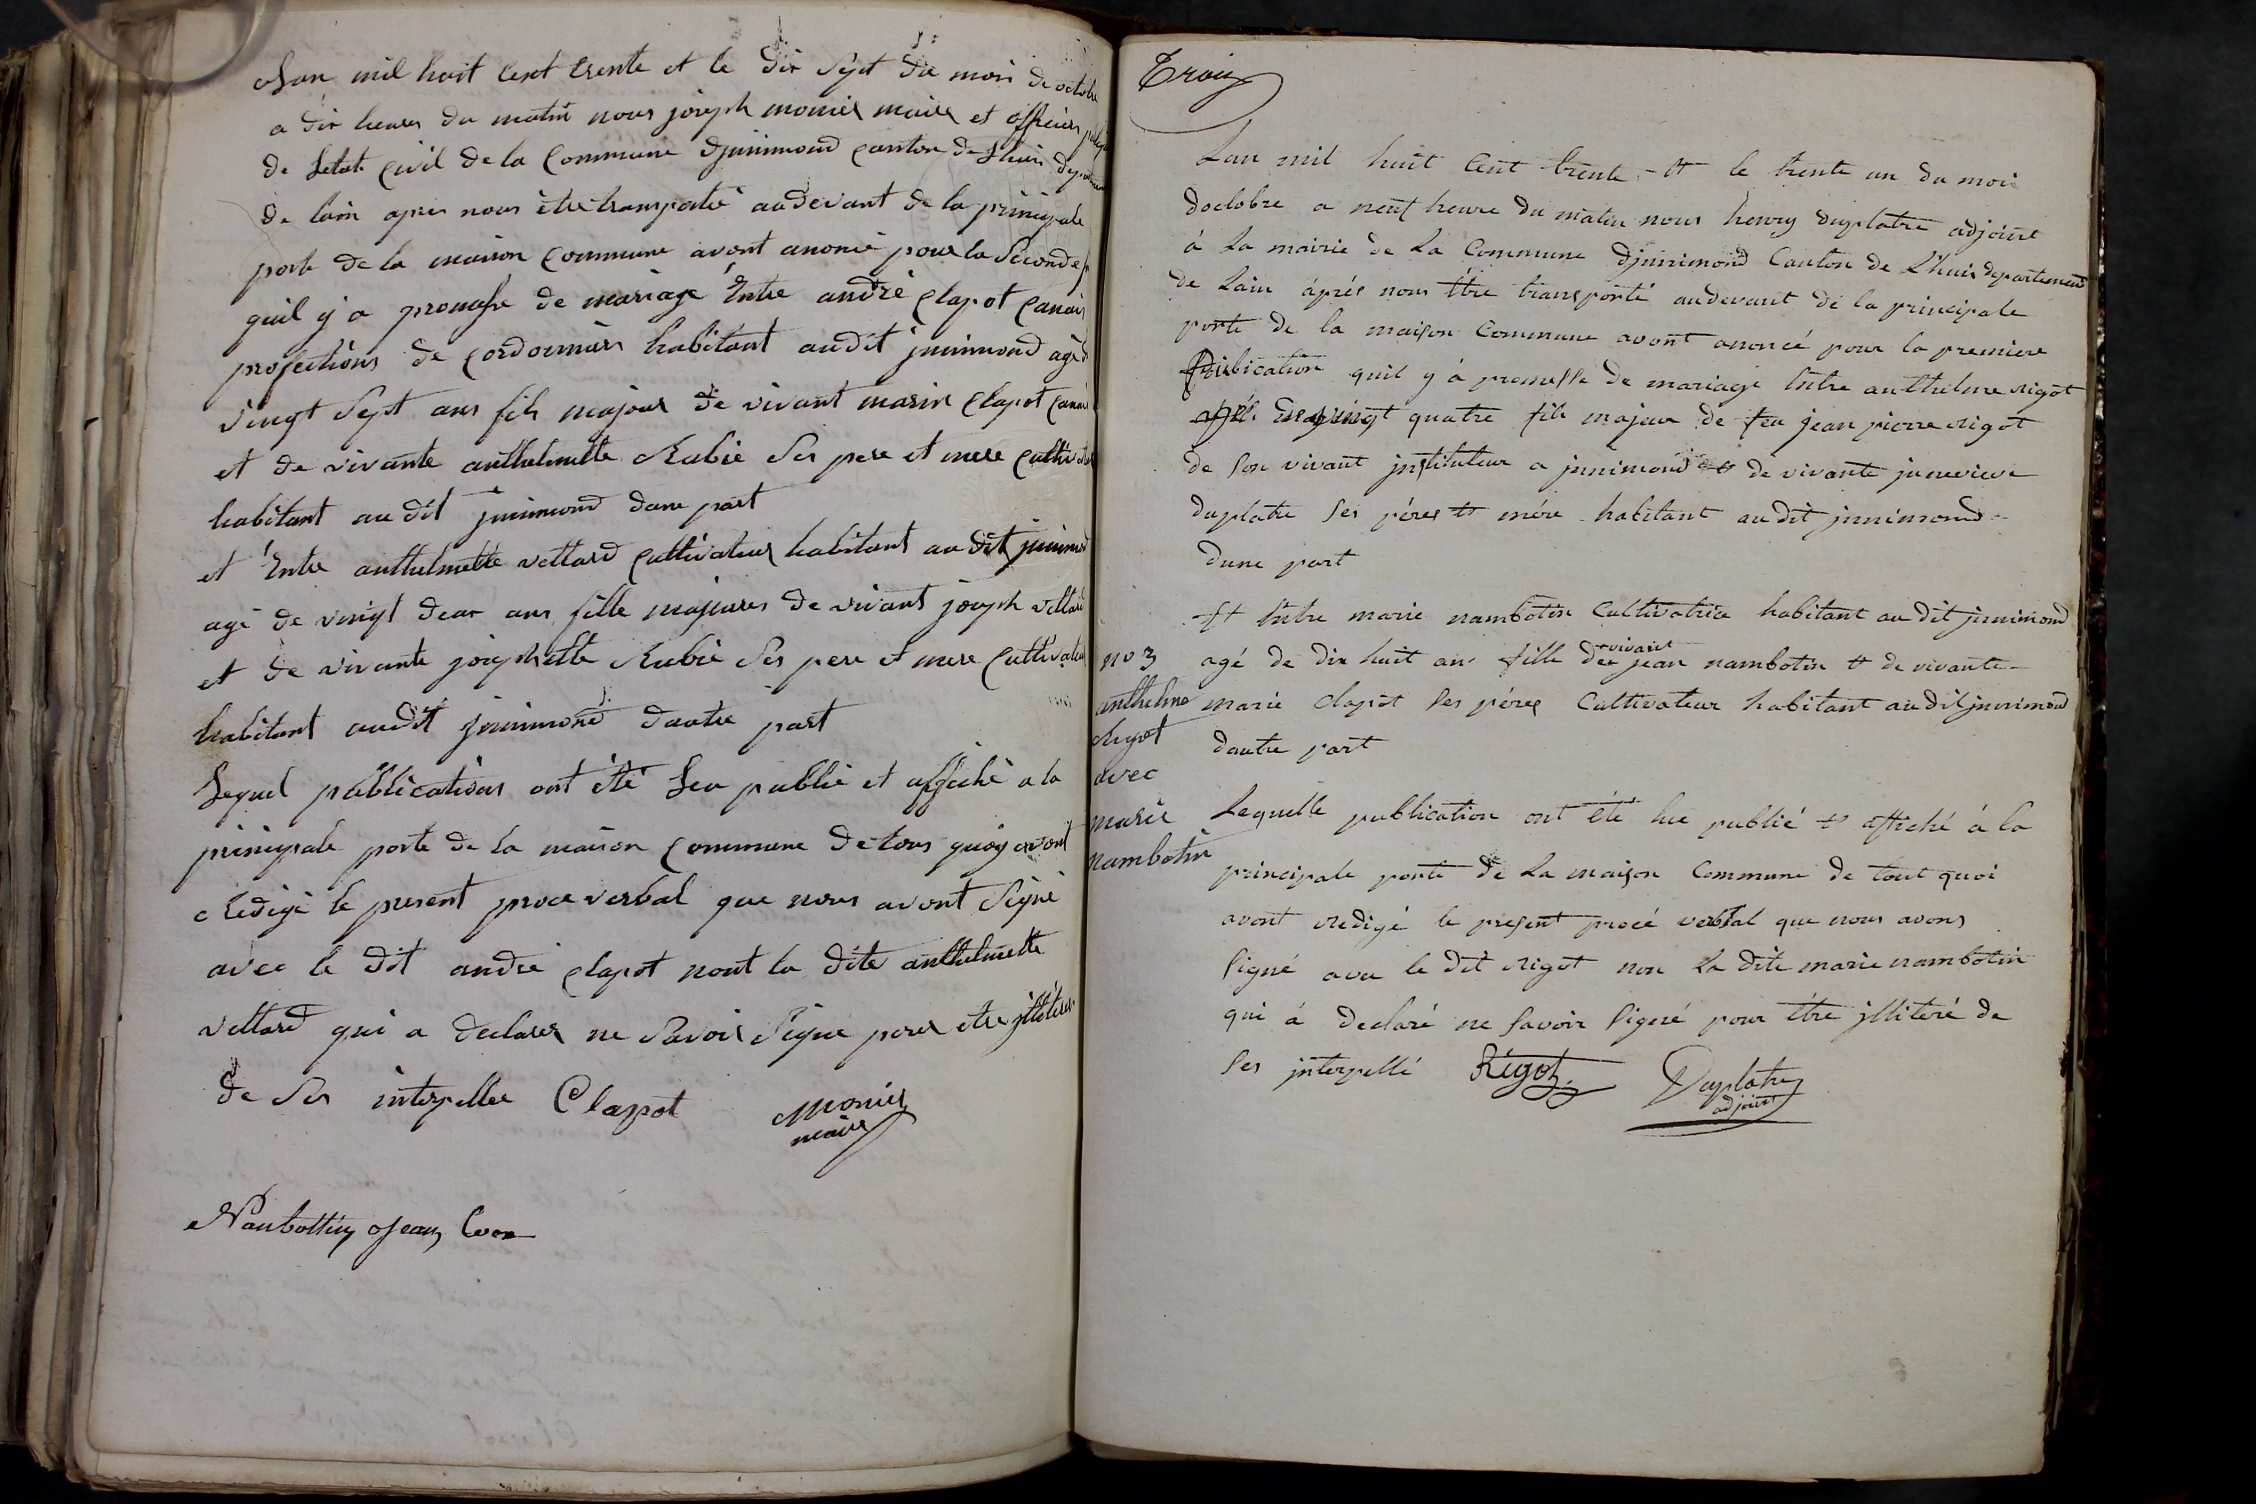 Lan mil huit Cent trente et le dix Sept du mois de octobre
a dix heures du matin nous joseph monier maire et officier
de Letat Civil de la Commune djunimond Canton de Lhuis
de lain apres nous être transporté audevant de la principale
porte de la maison Commune avont anoncé pour la Seconde
quil y a promesse de mariage Entre andré Clapot
profections de Cordonnier habitant audit junimond agé
vingt Sept ans fils majeur de vivant marin Clapot
et de vivante anthelmette Rubié Ses pere et mere
habitant au dit junimond dune part
et Entre anthelmette vettard Cultivateur habitant au dit
agé de vingt deux ans fille majeures de vivant joseph vettard
et de vivante josephette Rubié Ses pere et mere Cultivateur
habitant audit junimond dautre part
Lequel publications ont été Leu publié et affiché a la
principale porte de la maison Commune de tous quoy avont
Redigé le present proce verbal que nous avont Signé
avec le dit andré Clapot nont la dite anthelmette
vettard qui a declarer ne Savoir Signe pour etre
de Ses interpeller Clapot Monier
maire
Nanbottin Jean
Trois
Lan mil huit Cent trente et le trente un du mois
doctobre a neuf heure du matin nous henry duplatre adjoint
à La mairie de La Commune djunimond Canton de Lhuis departement
de Lain áprés nous être transporté audevant de la principale
porte de la maison Commune avont anoncé pour la premiere
publication quil y á promesse de mariage Entre anthelme rigot
vingt quatre fils majeur de feu jean pierre rigot
de Son vivant jnstituteur a junimond et de vivante junevieve
duplatre Ses péres et mére habitant au dit junimond
dune part
Et Entre marie nambotin Cultivatrice habitant au dit junimond
vivant
agé de dix huit an fille de jean nambotin et de vivante
marie Clapot Ses péres Cultivateur habitant au dit junimond
dautre part
no 3
anthelme
Rigot
avec
marie
nambotin
Lequelle publication ont été lue publié et affiché á la
principale porte de La maison Commune de tout quoi
avont redigé le present procé verbal que nous avons
Signé avec le dit rigot non La dite marie nambotin
qui á declaré ne Savoir Signé pour étre jlliteré de
Ses jnterpellé Rigot Duplatre
adjoint